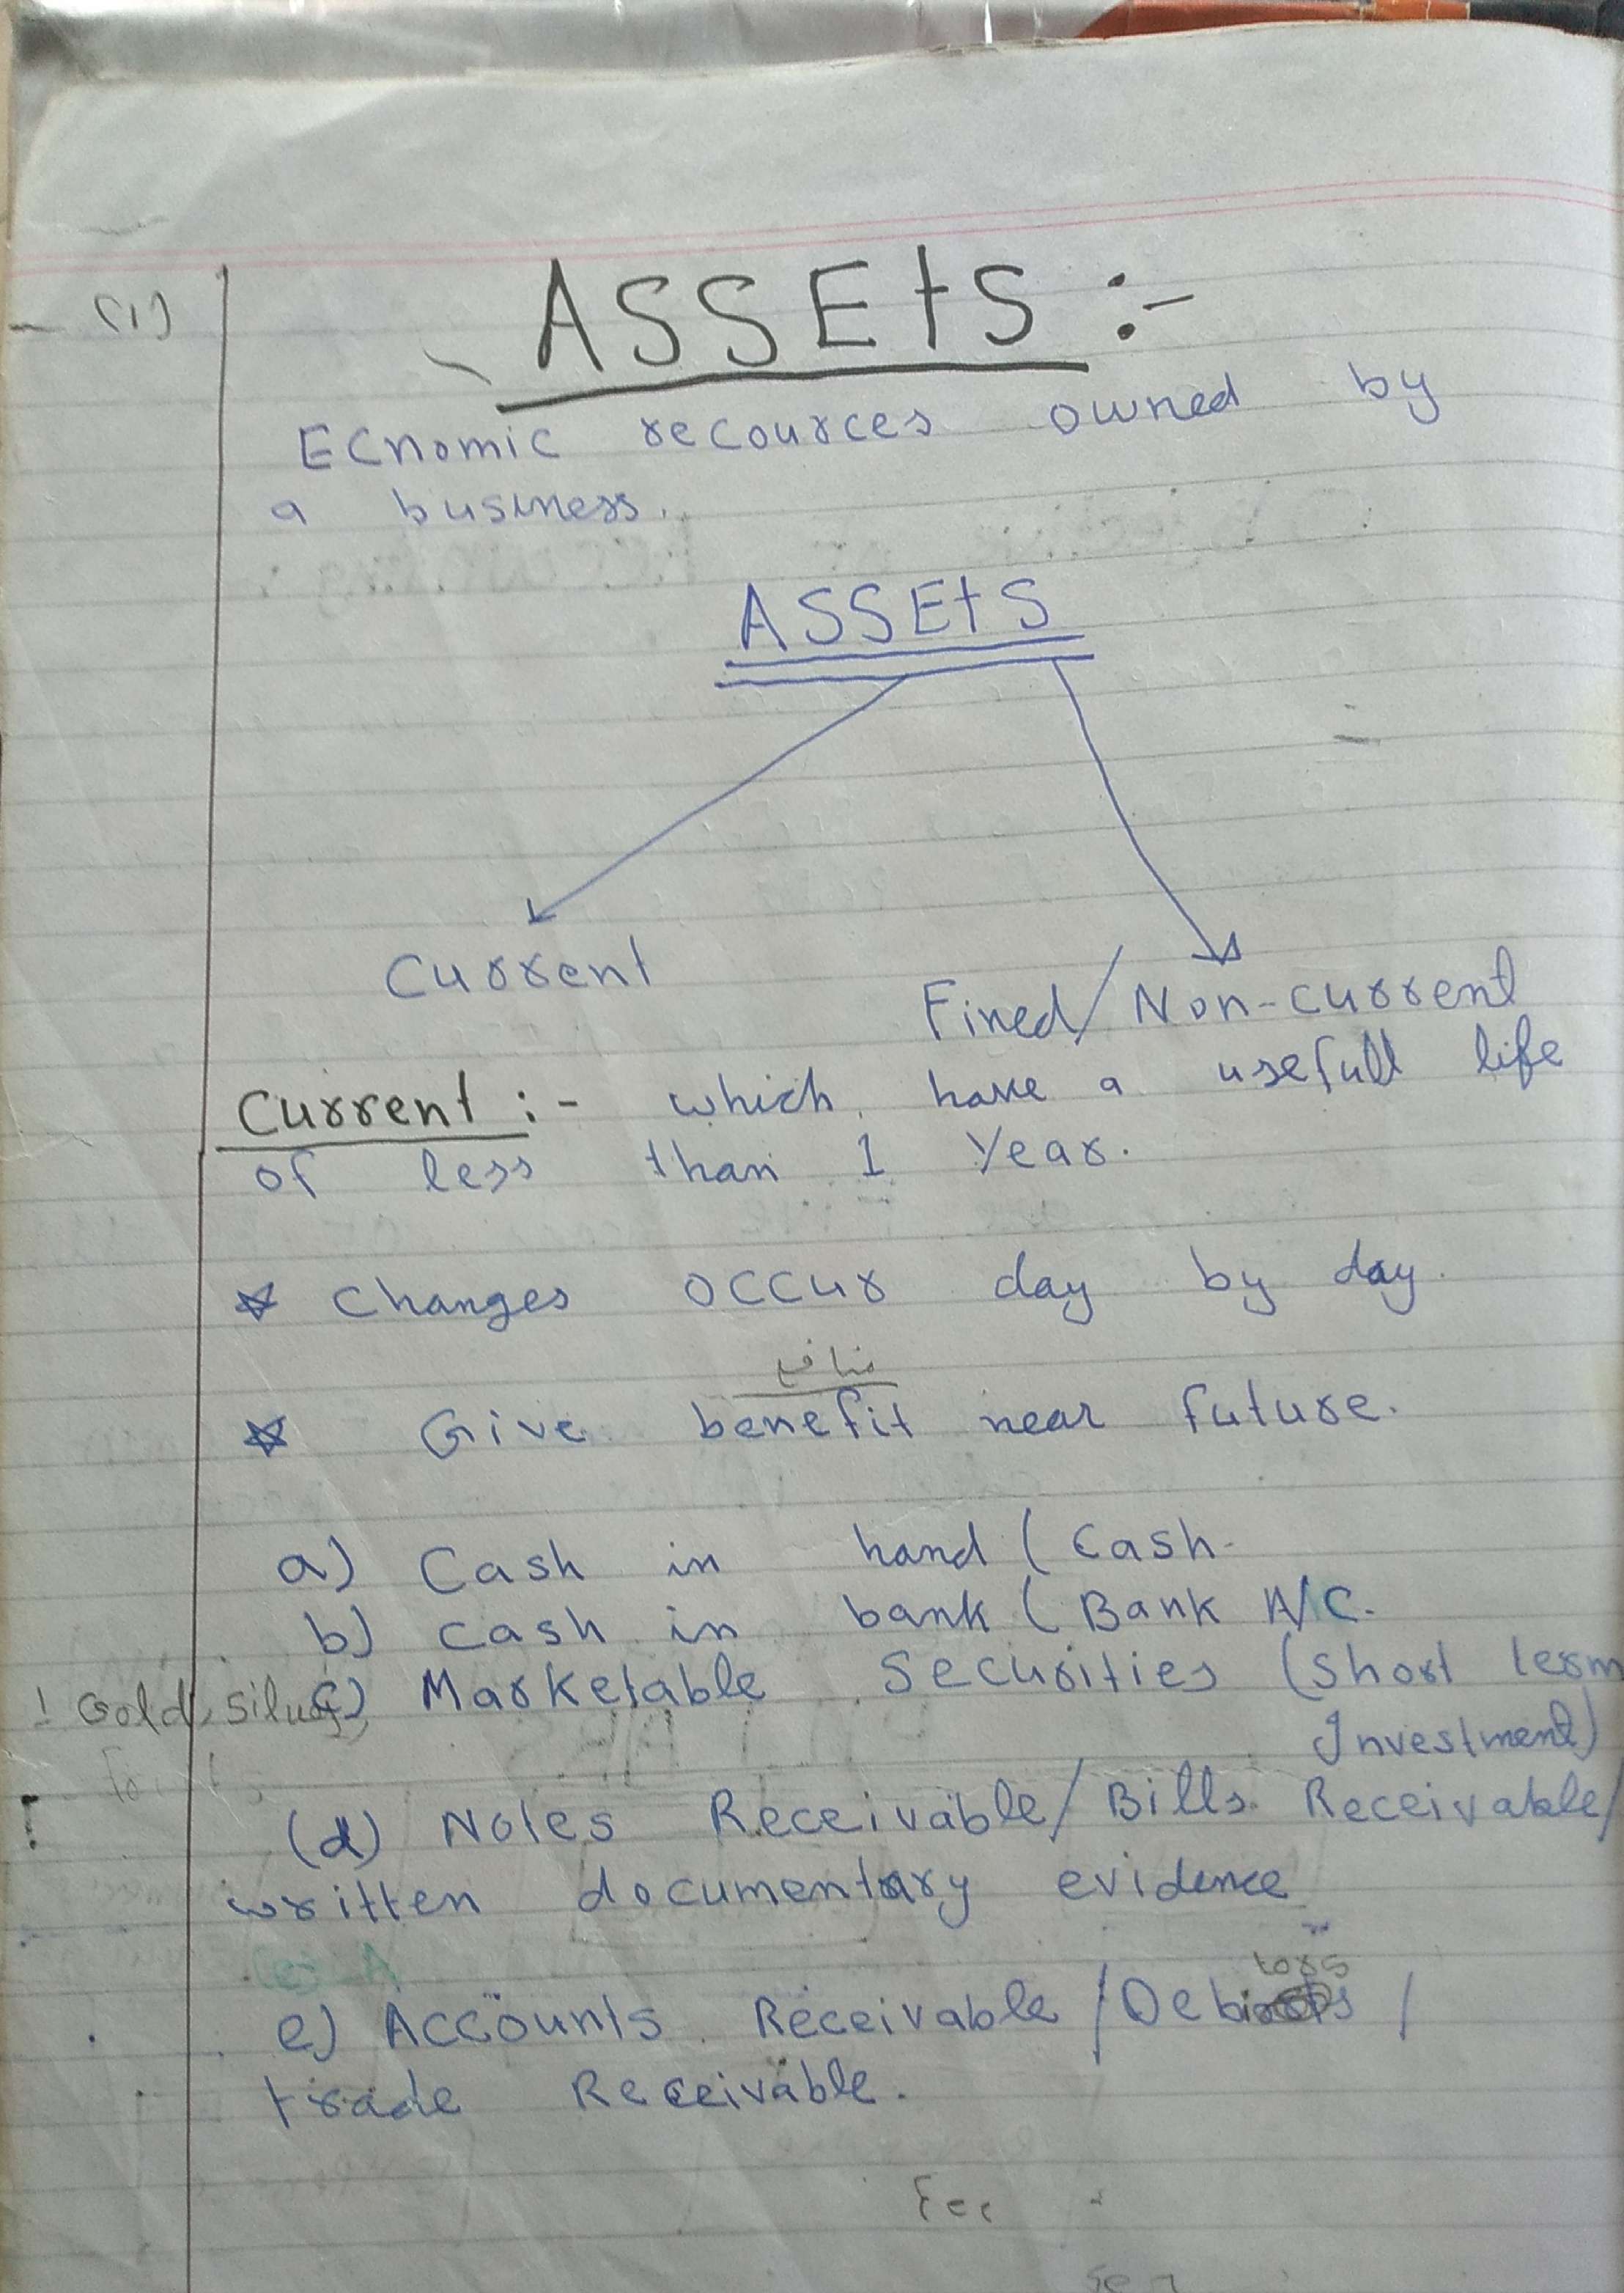 (1)
ASSEtS :-
ECnomic recources owned by
a business.
ASSEtS
Current
Fined/Non-current
Current :- which have a usefull life
of less than 1 Year.
Changes occur day by day.
منافع
Give benefit near future.
a) Cash in hand ( Cash-
b) Cash in bank ( Bank A/C.
! Gold, Silver,
c) Marketable Securities (Short term
Investment)
(d) Notes Receivable/Bills Receivable/
written documentary evidence
tors
e) Accounts Receivable / Deb /
trade Receivable.